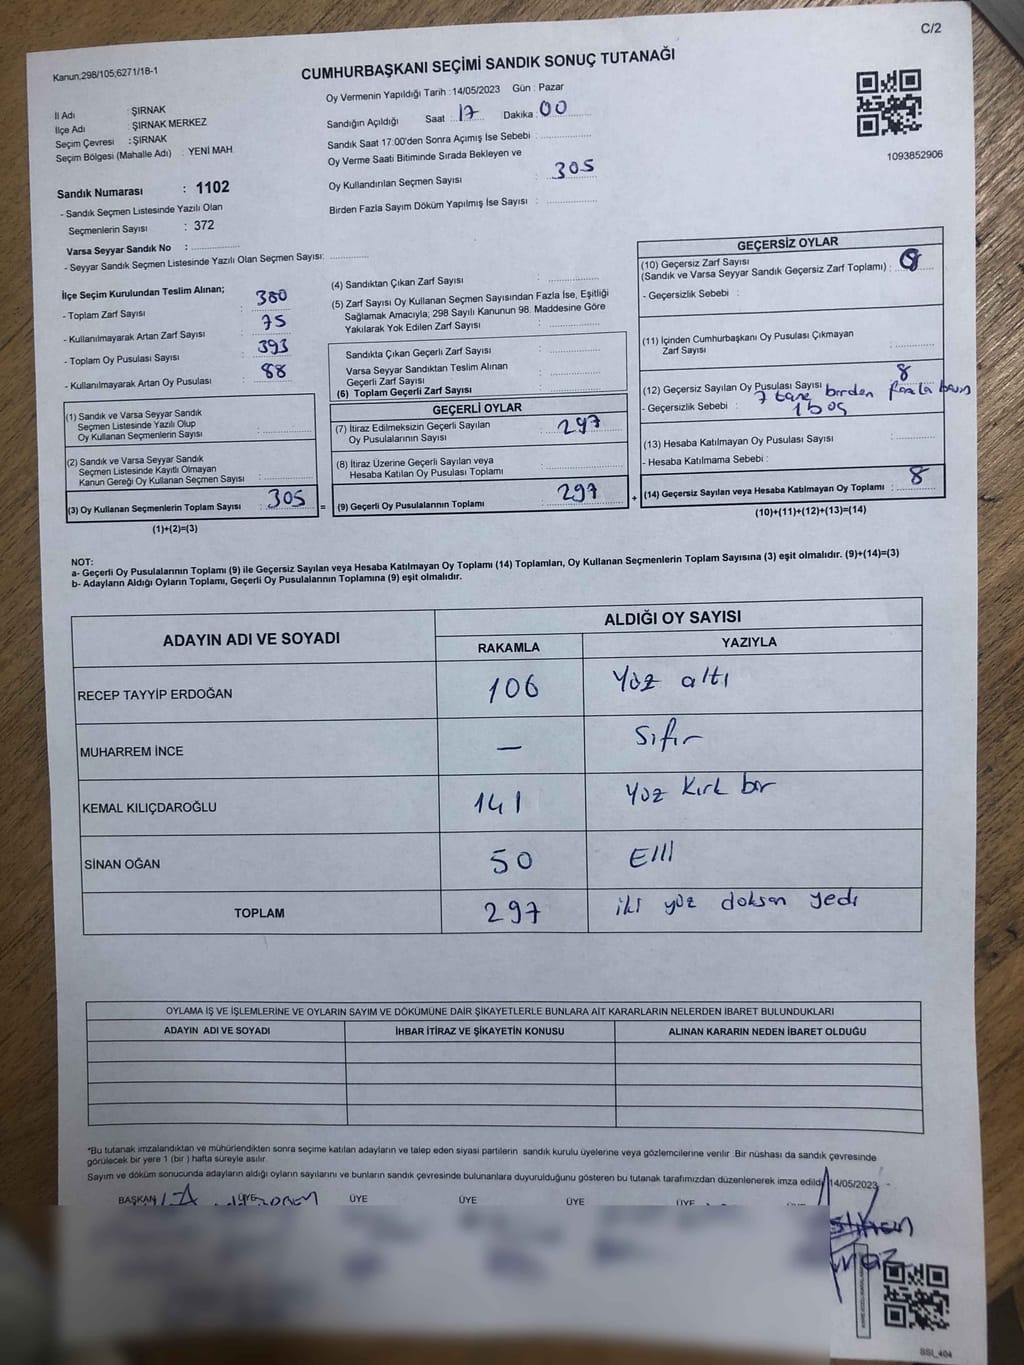 C/2
Kanun.298/105;6271/18-1
CUMHURBAŞKANI SEÇİMİ SANDIK SONUÇ TUTANAĞI
İl Adı : ŞIRNAK
İlçe Adı : ŞIRNAK MERKEZ
Seçim Çevresi : ŞIRNAK
Seçim Bölgesi (Mahalle Adı) : YENİ MAH.
Sandık Numarası : 1102
- Sandık Seçmen Listesinde Yazılı Olan
Seçmenlerin Sayısı : 372
Varsa Seyyar Sandık No :
- Seyyar Sandık Seçmen Listesinde Yazılı Olan Seçmen Sayısı:
Oy Vermenin Yapıldığı Tarih : 14/05/2023 Gün : Pazar
Sandığın Açıldığı Saat : 17 Dakika : 00
Sandık Saat 17:00'den Sonra Açımış İse Sebebi :
Oy Verme Saati Bitiminde Sırada Bekleyen ve
Oy Kullandırılan Seçmen Sayısı : 305
Birden Fazla Sayım Döküm Yapılmış İse Sayısı :
1093852906
İlçe Seçim Kurulundan Teslim Alınan;
- Toplam Zarf Sayısı : 380
- Kullanılmayarak Artan Zarf Sayısı : 75
- Toplam Oy Pusulası Sayısı : 393
- Kullanılmayarak Artan Oy Pusulası : 88
(1) Sandık ve Varsa Seyyar Sandık
Seçmen Listesinde Yazılı Olup
Oy Kullanan Seçmenlerin Sayısı :
(2) Sandık ve Varsa Seyyar Sandık
Seçmen Listesinde Kayıtlı Olmayan
Kanun Gereği Oy Kullanan Seçmen Sayısı :
(3) Oy Kullanan Seçmenlerin Toplam Sayısı : 305 =
(1)+(2)=(3)
(4) Sandıktan Çıkan Zarf Sayısı :
(5) Zarf Sayısı Oy Kullanan Seçmen Sayısından Fazla İse, Eşitliği
Sağlamak Amacıyla; 298 Sayılı Kanunun 98. Maddesine Göre
Yakılarak Yok Edilen Zarf Sayısı :
Sandıkta Çıkan Geçerli Zarf Sayısı :
Varsa Seyyar Sandıktan Teslim Alınan
Geçerli Zarf Sayısı :
(6) Toplam Geçerli Zarf Sayısı :
GEÇERLİ OYLAR
(7) İtiraz Edilmeksizin Geçerli Sayılan
Oy Pusulalarının Sayısı : 297
(8) İtiraz Üzerine Geçerli Sayılan veya
Hesaba Katılan Oy Pusulası Toplamı :
(9) Geçerli Oy Pusulalarının Toplamı : 297 +
GEÇERSİZ OYLAR
(10) Geçersiz Zarf Sayısı
(Sandık ve Varsa Seyyar Sandık Geçersiz Zarf Toplamı) :
- Geçersizlik Sebebi :
(11) İçinden Cumhurbaşkanı Oy Pusulası Çıkmayan
Zarf Sayısı :
(12) Geçersiz Sayılan Oy Pusulası Sayısı : 8
- Geçersizlik Sebebi : 7 tane birden fazla basın
1 boş
(13) Hesaba Katılmayan Oy Pusulası Sayısı :
- Hesaba Katılmama Sebebi :
(14) Geçersiz Sayılan veya Hesaba Katılmayan Oy Toplamı : 8
(10)+(11)+(12)+(13)=(14)
NOT:
a- Geçerli Oy Pusulalarının Toplamı (9) ile Geçersiz Sayılan veya Hesaba Katılmayan Oy Toplamı (14) Toplamları, Oy Kullanan Seçmenlerin Toplam Sayısına (3) eşit olmalıdır. (9)+(14)=(3)
b- Adayların Aldığı Oyların Toplamı, Geçerli Oy Pusulalarının Toplamına (9) eşit olmalıdır.
ADAYIN ADI VE SOYADI ALDIĞI OY SAYISI
RAKAMLA YAZIYLA
RECEP TAYYİP ERDOĞAN 106 Yüz altı
MUHARREM İNCE — Sıfır
KEMAL KILIÇDAROĞLU 141 Yüz kırk bir
SİNAN OĞAN 50 Elli
TOPLAM 297 iki yüz doksan yedi
OYLAMA İŞ VE İŞLEMLERİNE VE OYLARIN SAYIM VE DÖKÜMÜNE DAİR ŞİKAYETLERLE BUNLARA AİT KARARLARIN NELERDEN İBARET BULUNDUKLARI
ADAYIN ADI VE SOYADI İHBAR İTİRAZ VE ŞİKAYETİN KONUSU ALINAN KARARIN NEDEN İBARET OLDUĞU
*Bu tutanak imzalandıktan ve mühürlendikten sonra seçime katılan adayların ve talep eden siyasi partilerin sandık kurulu üyelerine veya gözlemcilerine verilir. Bir nüshası da sandık çevresinde
görülecek bir yere 1 (bir ) hafta süreyle asılır.
Sayım ve döküm sonucunda adayların aldığı oyların sayılarını ve bunların sandık çevresinde bulunanlara duyurulduğunu gösteren bu tutanak tarafımızdan düzenlenerek imza edildi. 14/05/2023
BAŞKAN ÜYE ÜYE ÜYE ÜYE ÜYE
SSI_404